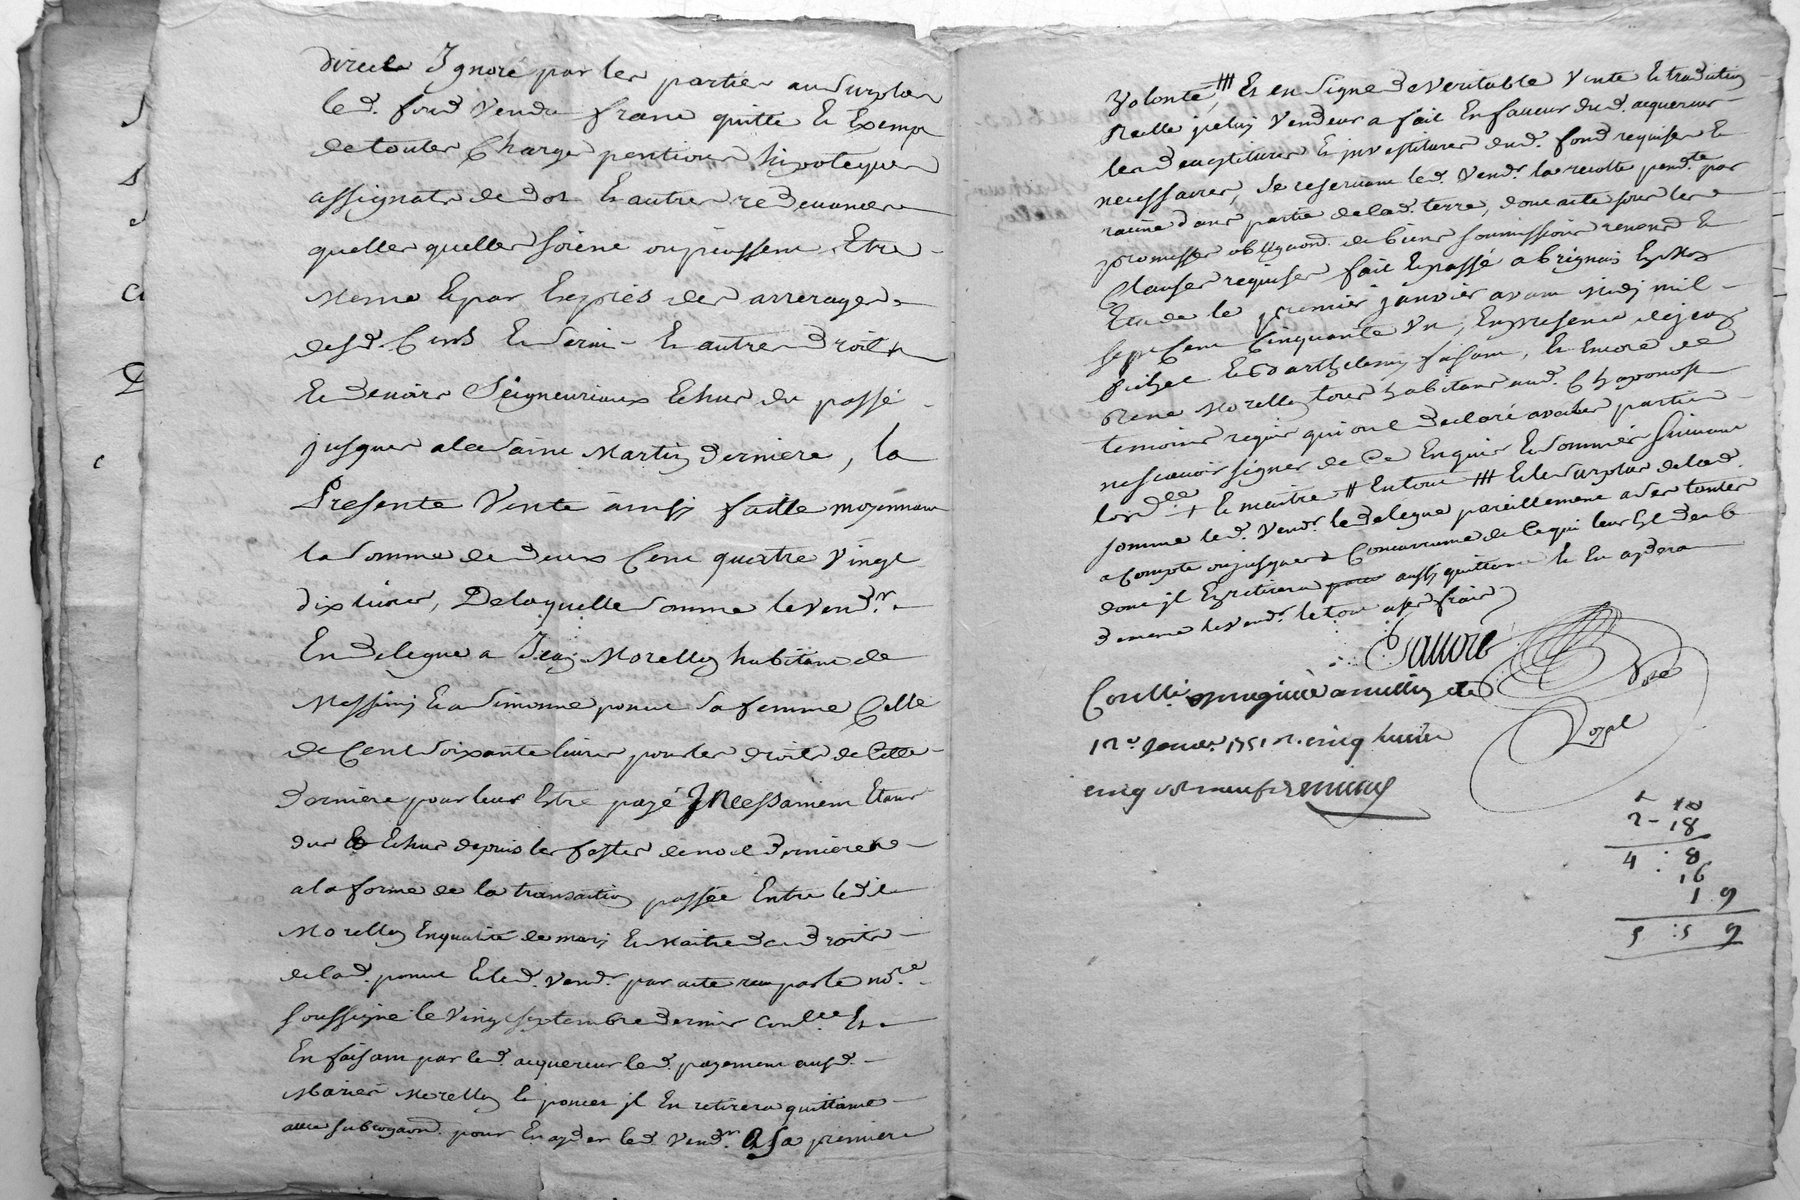 directe Ignoré par les parties au Surplus
led. fond Vendu franc quitte Et Exemp
de toutes Charges pentions hipoteques
assignats de dot Et autres redevances
quelles quelles soient ou puissent Etre
Meme Et par Exprés des arrerages
desd. Cens Et Servis Et autres droits
Et devoirs Seigneuriaux Echus du passé
jusques a la Saint Martin derniere, la
Presente Vente ainsy faitte moyennant
la Somme de deux Cent quatre Vingt
dix livres, De laquelle Somme le vendr.
En delegue a Jean Morellon habitant de
Messimy Et a Simonne poncet Sa femme Celle
de Cent Soixante livres pour les droits de Cette
derniere pour leur Estre payé Incessament Etant
dus Et Echus depuis les festes de noel dernieres
a la forme de la transaction passée Entre ledit
Morellon En qualité de mary Et Maitre des droits
de lad. poncet Et led. Vendr. par acte reçu par le nore.
soussigné le Vingt septembre dernier Conllé Et
En faisant par led. acquereur led. payement ausd.
Mariés Morellon Et poncet jl En retirera quittance
avec subrogaon. pour En ayder led. Vendr. a Sa premiere
Volonté, Et En Signe de Veritable Vente Et tradition
Reelle jceluy Vendeur a fait En faveur dud. acquereur
les devestitures Et jnvestitures dud. fond requises Et
necessaires, Se reservant led. Vendr. la recolte pendte. par
racine dans partie de lad. terre, dont acte sous les
promisses obligaons. de biens Soumissions renons. Et
Clauses requises fait Et passé a brignais En Nos
Etude le premier janvier avant Midy mil
sept Cent Cinquante Un, En presence de jean
Et Barthelemy fasant, Et Encore de
Morellon tous habitans aud. Chaponost
temoins requis qui ont declaré avec les parties
ne scavoir signer de Ce Enquis Et Sommés Suivant
lordce. + Et maitre # En tout ⧻ Et le Surplus de lad.
somme led. Vendr. le delegue pareillement a Ses
a Compte ou jusques a Concurrance de Ce qui leur Est deub
dont jl En retirera aussy quittance Et En aydera
de meme le vendr. le tout a Ses frais
Conllé
12e. Janvr. 1751 R. cinq livres
cinq sols neuf d.
Royal
2 - 18
4 : 8
16
1 9
5 : 5 9